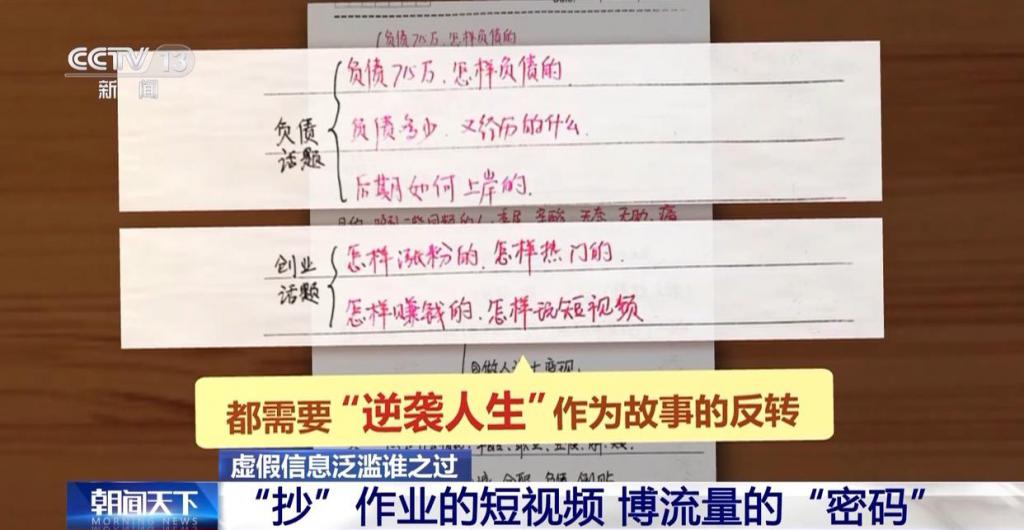 CCTV 13
新闻
负债715万、怎样负债的
负债
话题
负债715万、怎样负债的
负债多少、又经历的什么.
后期如何上岸的.
创业
话题
怎样涨粉的、怎样热门的.
怎样赚钱的、怎样玩短视频
都需要“逆袭人生”作为故事的反转
虚假信息泛滥谁之过
朝闻天下
MORNING NEWS
“抄”作业的短视频 博流量的“密码”